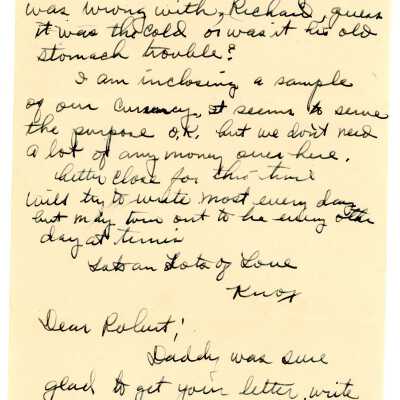 was wrong with, Richard, guess
it was the cold or was it his old
stomach trouble?
I am inclosing a sample
of our currency, it seems to serve
the purpose O.K. but we don't need
a lot of any money over here.
better close for this time
will try to write most every day
but may turn out to be every other
day at times
Lots an Lots of Love
Knox
Dear Robert!
Daddy was sure
glad to get your letter, write